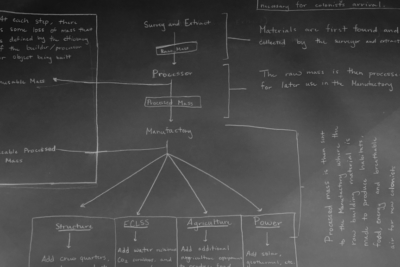 After each step, there
is some loss of mass that
is defined by the efficiency
of the builder/processor
or object being built
useable Mass
useable Processed
Mass
Survey and Extract
Raw Mass
Processer
Processed Mass
Manufactory
Structures
Add crew quarters,
ECLSS
Add water
Agriculture
Add additional
agriculture
Power
Add solar,
geothermal, etc
necessary for colonists arrival.
Materials are first found and
collected by the surveyor and
The raw mass is then processed
for later use in the Manufactory
Processed mass is then sent
to the Manufactory where the
raw building material is
used to produce habitats,
food, energy and breathable
air for new colonists